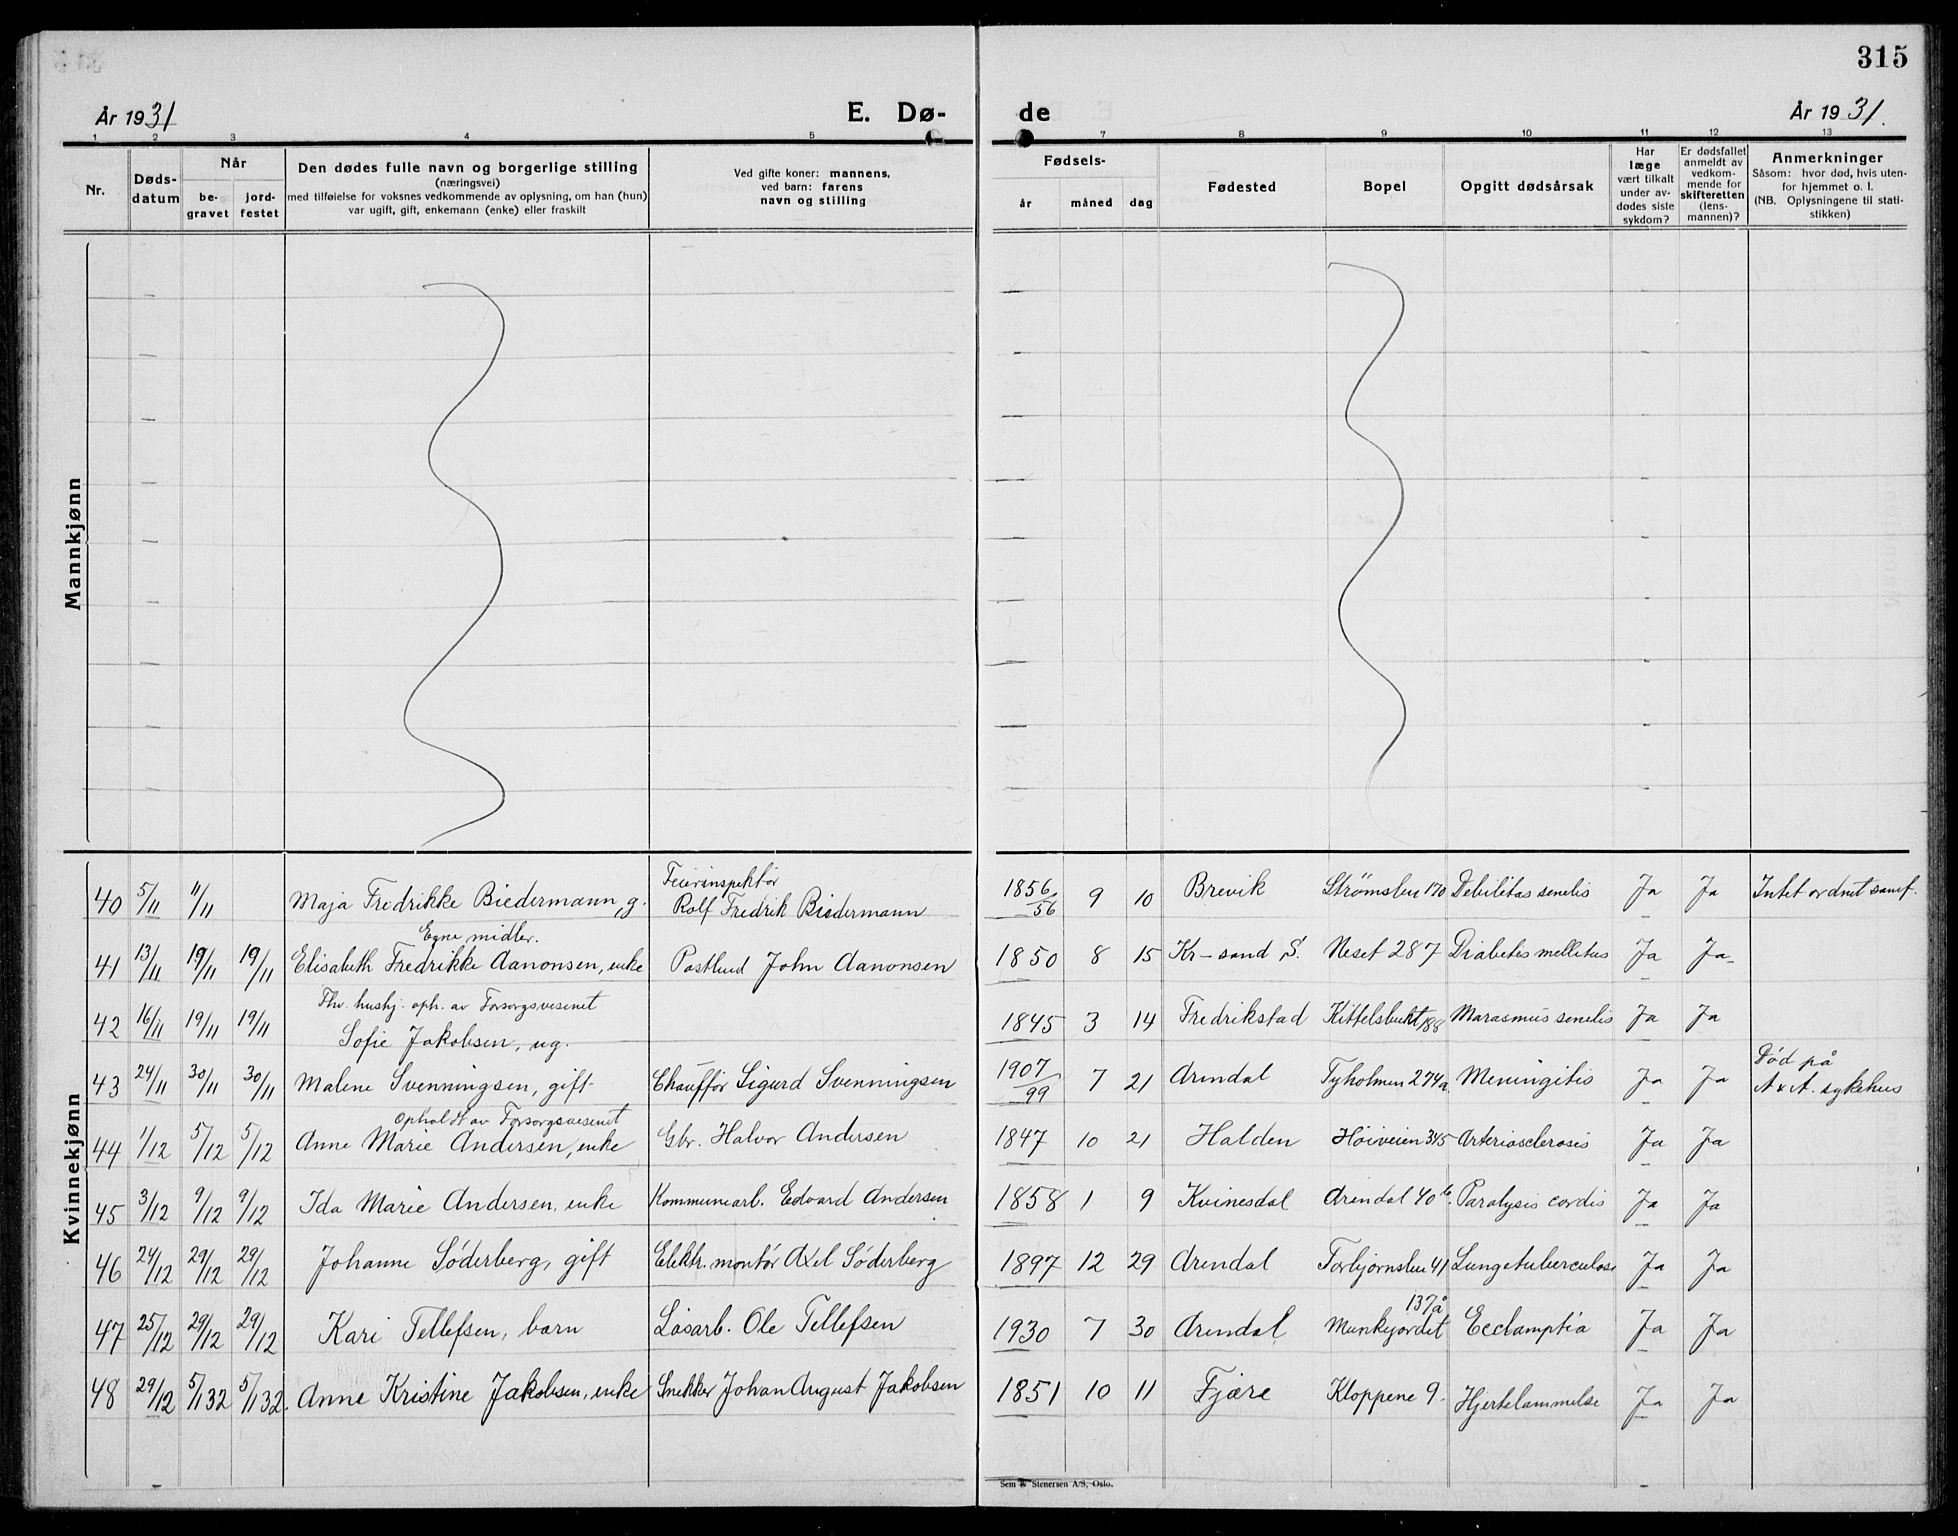 315
År 1931
E. Dø-
de
År 1931.
1 2 3 4 5 7 8 9 10 11 12 13
Nr.
Døds-
datum
Når
be-
gravet
jord-
festet
Den dødes fulle navn og borgerlige stilling
(næringsvei)
med tilføielse for voksnes vedkommende av oplysning, om han (hun)
var ugift, gift, enkemann (enke) eller fraskilt
Ved gifte koner: mannens,
ved barn: farens
navn og stilling
Fødsels-
år
måned
dag
Fødested
Bopel
Opgitt dødsårsak
Har
læge
vært tilkalt
under av-
dødes siste
sykdom?
Er dødsfallet
anmeldt av
vedkom-
mende for
skifteretten
(lens-
mannen)?
Anmerkninger
Såsom: hvor død, hvis uten-
for hjemmet o. l.
(NB. Oplysningene til stati-
stikken)
Mannkjønn
Kvinnekjønn
Feierinspektør
40 5/11 11/11 Maja Fredrikke Biedermann, g. Rolf Fredrik Biedermann 1856/56 9 10 Brevik Strømsbu 170 Debilitas senilis Ja Ja Intet ordnet samf.
Egne midler.
41 13/11 19/11 19/11 Elisabeth Fredrikke Aanonsen, enke Postbud John Aanonsen 1850 8 15 Kr-sand S. Neset 287 Diabetes mellitus Ja Ja
Fhv. hushj. oph. av Forsorgsvesenet
42 16/11 19/11 19/11 Sofie Jakobsen, ug. 1845 3 14 Fredrikstad Kittelsbukt 188 Marasmus senilis Ja Ja
43 24/11 30/11 30/11 Malene Svenningsen, gift Chauffør Sigurd Svenningsen 1907/99 7 21 Arendal Tyholmen 274a Meningitis Ja Ja Død på
A x A. sykehus
Opholdt av Forsorgsvesenet
44 1/12 5/12 5/12 Anne Marie Andersen, enke Gbr. Halvor Andersen 1847 10 21 Halden Höiveien 345 Arteriosclerosis Ja Ja
45 3/12 9/12 9/12 Ida Marie Andersen, enke Kommunearb. Edvard Andersen 1858 1 9 Kvinesdal Arendal 40b. Paralysis cordis Ja Ja
46 24/12 29/12 29/12 Johanne Söderberg, gift Elektr. montör Axel Söderberg 1897 12 29 Arendal Torbjörnsbu 41 Lungetuberculose Ja Ja
137å
47 25/12 29/12 29/12 Kari Tellefsen, barn Løsarb. Ole Tellefsen 1930 7 30 Arendal Munkejordet Ecclamptia Ja Ja
48 29/12 5/1 32 5/1 32. Anne Kristine Jakobsen, enke Snekker Johan August Jakobsen 1851 10 11 Fjære Kloppene 9. Hjertelammelse Ja Ja
Sem & Stenersen A/S, Oslo.